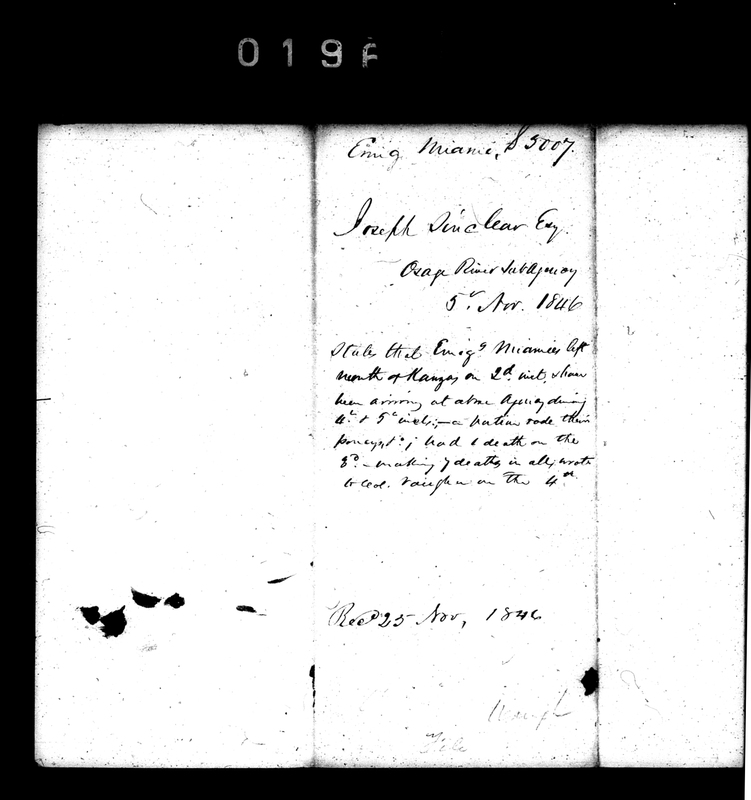 0196
Emig Miami, S 3007.
Joseph Sinclear Esq.
Osage River SubAgency
5th Nov. 1846
States that Emigg Miamies left
mouth of Kanzas on 2d inst, & have
been arriving at above Agency during
4th & 5th insts; – a portion rode their
poneys, &c; had 1 death on the
3d – making 7 deaths in all; wrote
to Col. Vaughn on the 4th
Recd 25 Nov, 1846
File